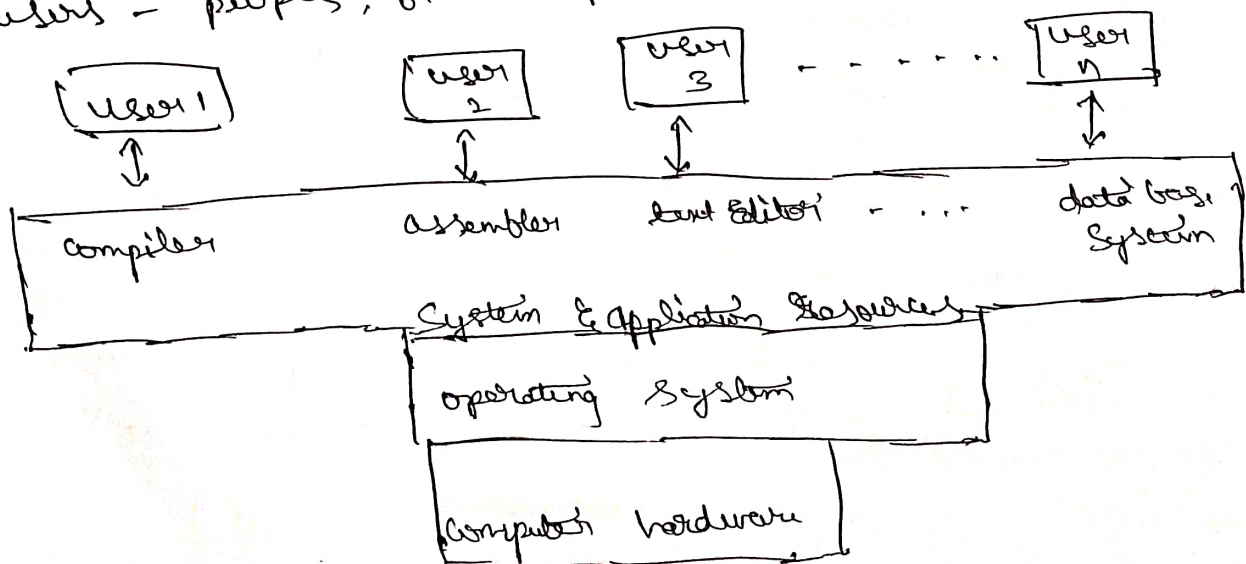 users - peoples,
user 1 user 2 user 3 - - - - - .. user n
compiler assembler text Editor - ... data base System
System & Application Resources
operating System
Computer hardware